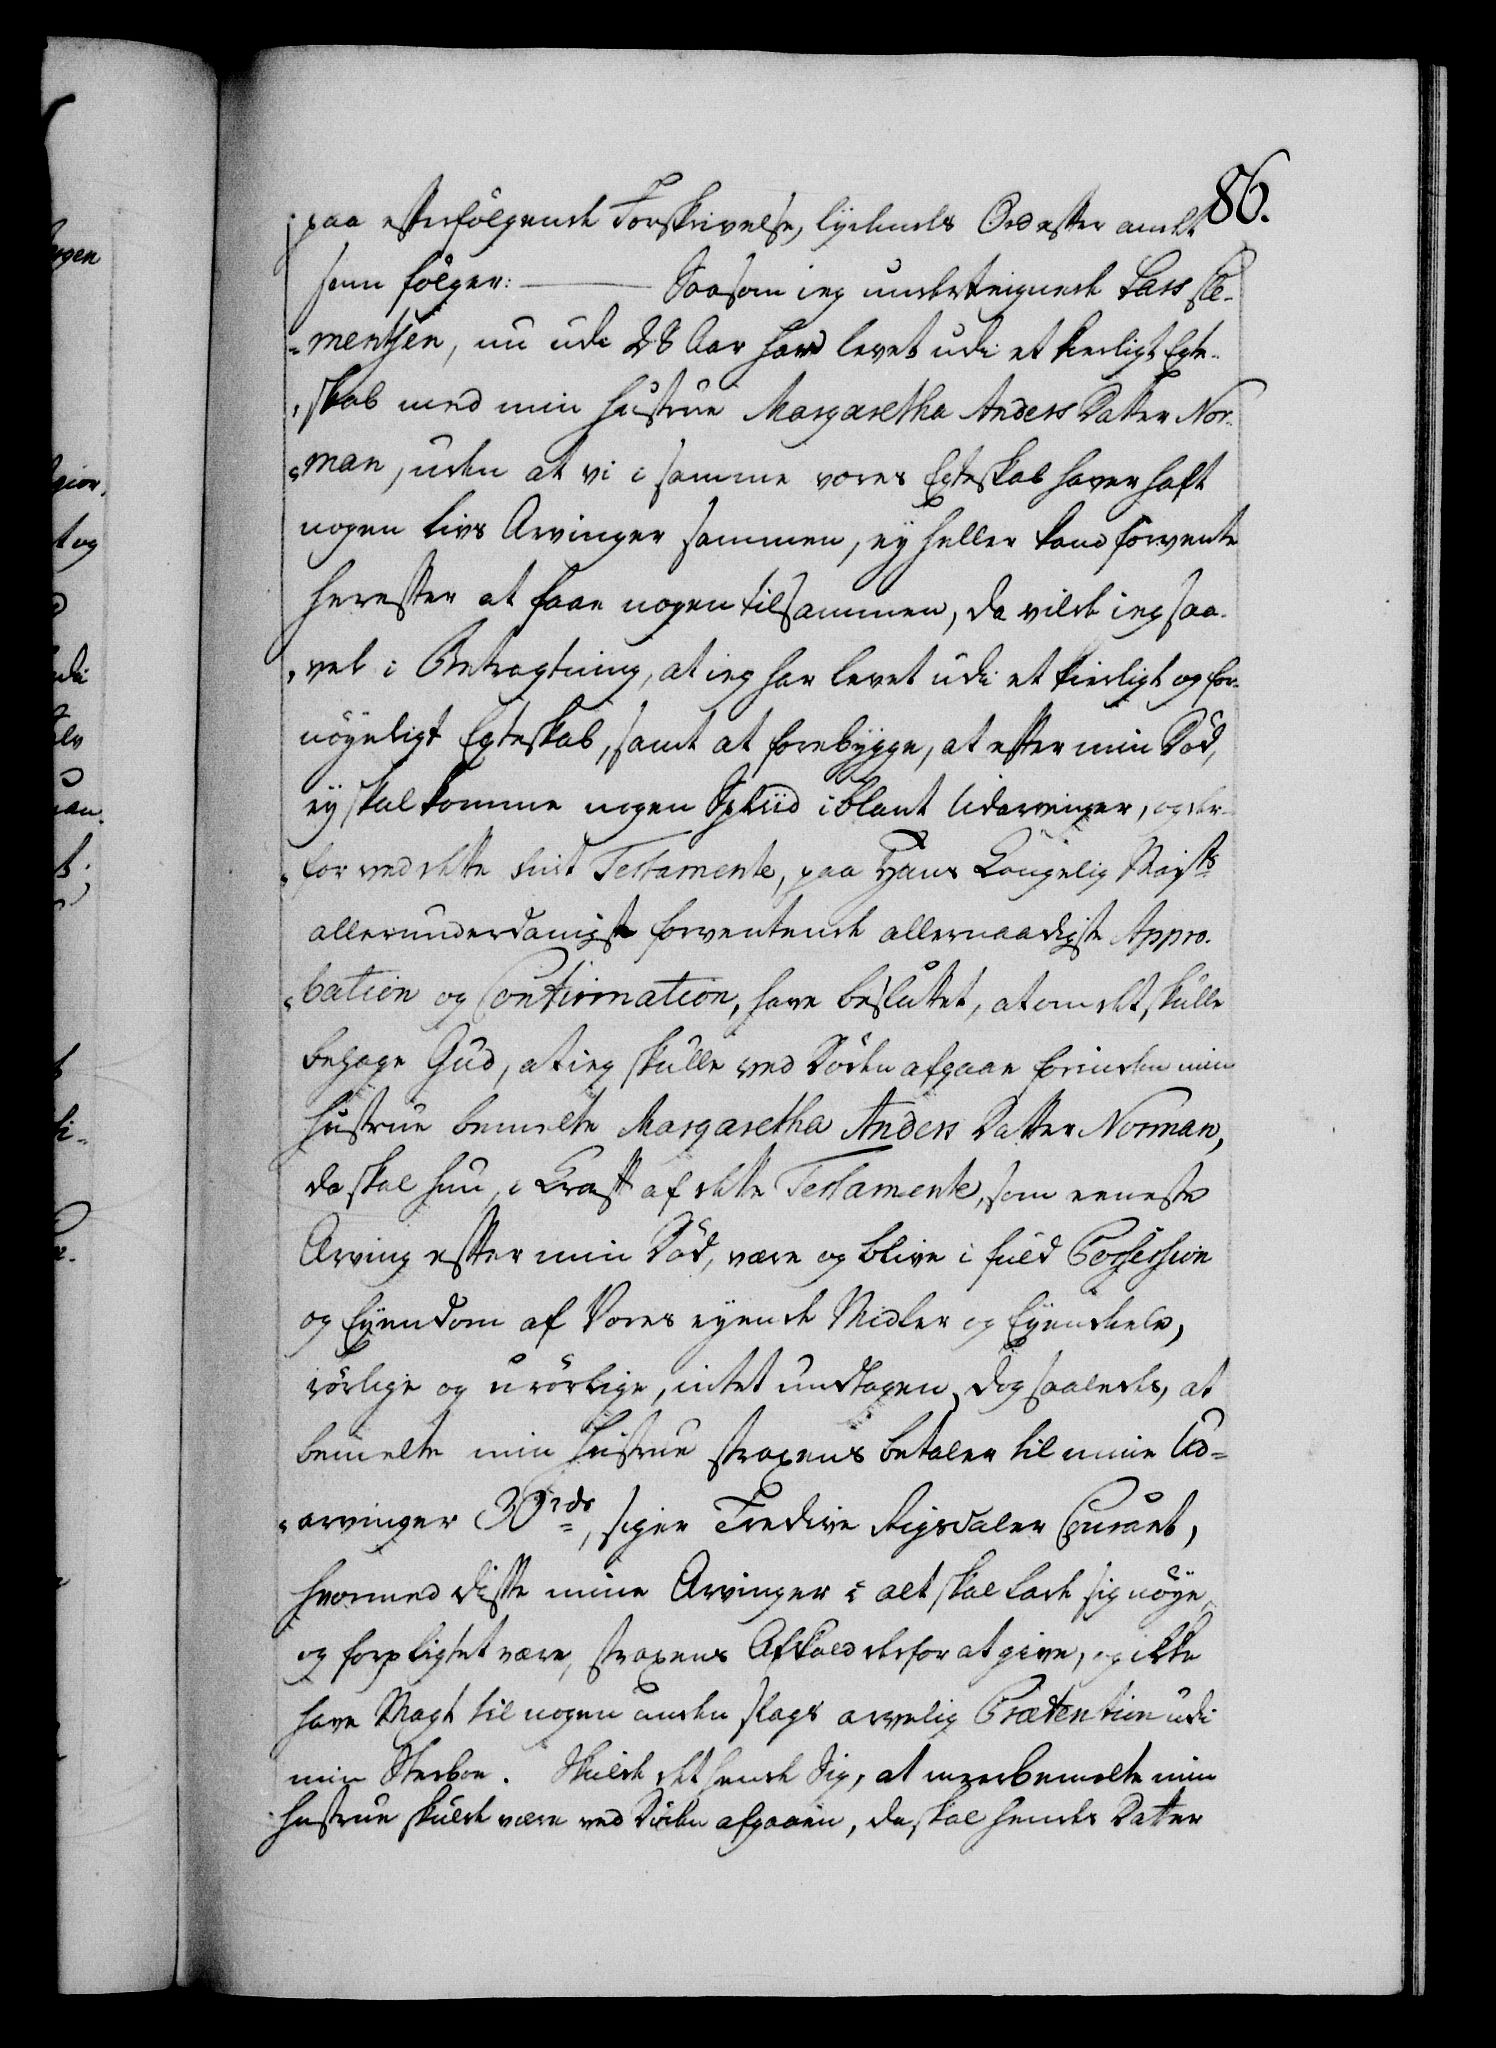 86.
paa efterfölgende Forskrivelse, lydende Ord efter andet
som fölger: Saasom ieg undertegnede Lars Cle-
mentsen, nu udi 28 Aar haver levet udi et kierligt Egte-
skab med min Hustrue Margaretha Anders Datter Nor-
man, uden at vi i samme vores Egteskab haver haft
nogen Livs Arvinger sammen, ey heller kand forvente
herefter at faae nogen tilsammen, da vilde ieg saa-
vel i Betragtning, at ieg har levet udi et kierligt og for-
nöyeligt Egteskab, samt at forebygge, at efter min Död,
ey skal komme nogen Spliid iblant Udarvinger, og der-
for ved dette mit Testamente, paa Hans Kongelig Maj:ts
allerunderdanigste forventende allernaadigste Appro-
bation og Confirmation, have besluttet, at om det skulle
behage Gud, at ieg skulle ved Döden afgaae forinden min
Hustrue bemelte Margaretha Anders Datter Norman,
da skal hun, i Kraft af dette Testamente, som eneste
Arving efter min Död, være og blive i fuld Possession
og Eyendom af Vores eyende Midler og Eyendele,
rörlige og urörlige, intet undtagen, dog saaledes, at
bemelte min Hustrue straxens betaler til mine Ud-
arvinger 30 rds, siger Tredive Rigsdaler Courant,
hvormed disse mine Arvinger i alt skal lade sig nöye,
og forpligtet være, straxens Afkald derfor at give, og ikke
have Magt til nogen anden slags arvelig Prætention udi
min Sterboe. Skulde det hende Sig, at meerbemelte min
Hustrue skulde være ved Döden afgaaen, da skal hendes Datter